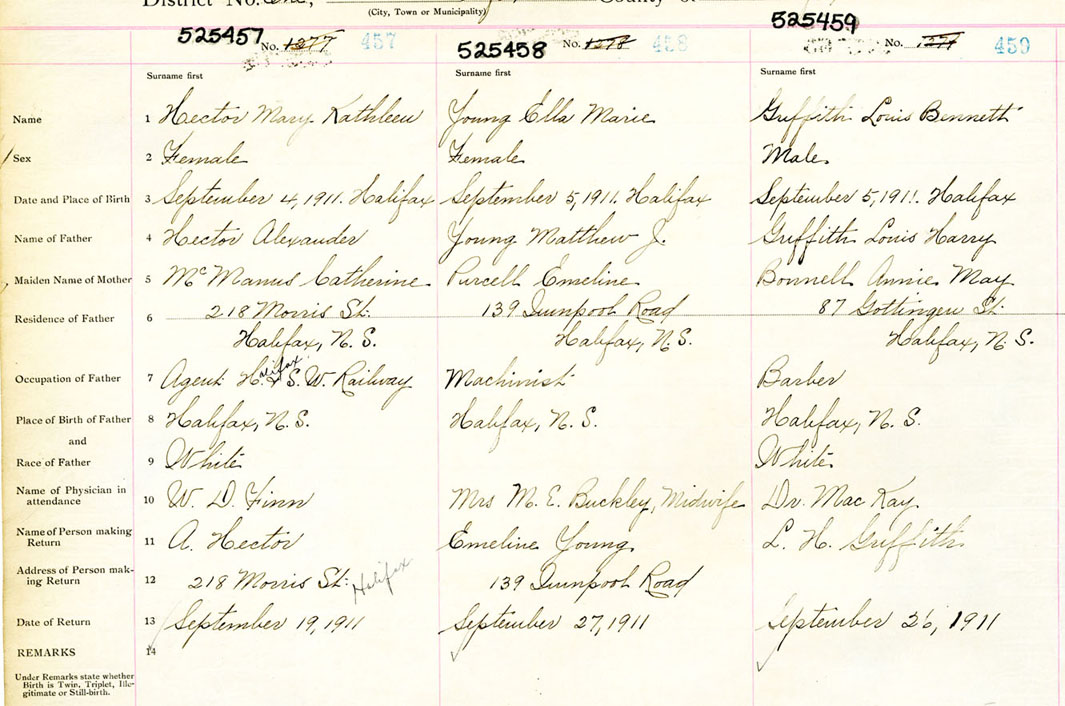 District No. One, County of
(City, Town or Municipality)
525457 No. 1277 457
525458 No. 1278 458
525459 No. 1279 459
Surname first Surname first Surname first
Name 1 Hector Mary Kathleen Young Ella Marie Griffith Louis Bennett
Sex 2 Female Female Male
Date and Place of Birth 3 September 4, 1911. Halifax September 5, 1911. Halifax September 5, 1911. Halifax
Name of Father 4 Hector Alexander Young Matthew J. Griffith Louis Harry
Maiden Name of Mother 5 McManus Catherine Purcell Emeline Bonnell Annie May
Residence of Father 6 218 Morris St. 139 Quinpool Road 87 Gottingen St.
Halifax, N.S. Halifax, N.S. Halifax, N.S.
Occupation of Father 7 Agent Halifax & S. W. Railway Machinist Barber
Place of Birth of Father 8 Halifax, N.S. Halifax, N.S. Halifax, N.S.
and
Race of Father 9 White White
Name of Physician in attendance 10 W. D. Finn Mrs M. E. Buckley, Midwife Dr. MacKay
Name of Person making Return 11 A. Hector Emeline Young L. H. Griffith
Address of Person making Return 12 218 Morris St. Halifax 139 Quinpool Road
Date of Return 13 September 19, 1911 September 27, 1911 September 26, 1911
REMARKS 14
Under Remarks state whether
Birth is Twin, Triplet, Ille-
gitimate or Still-birth.